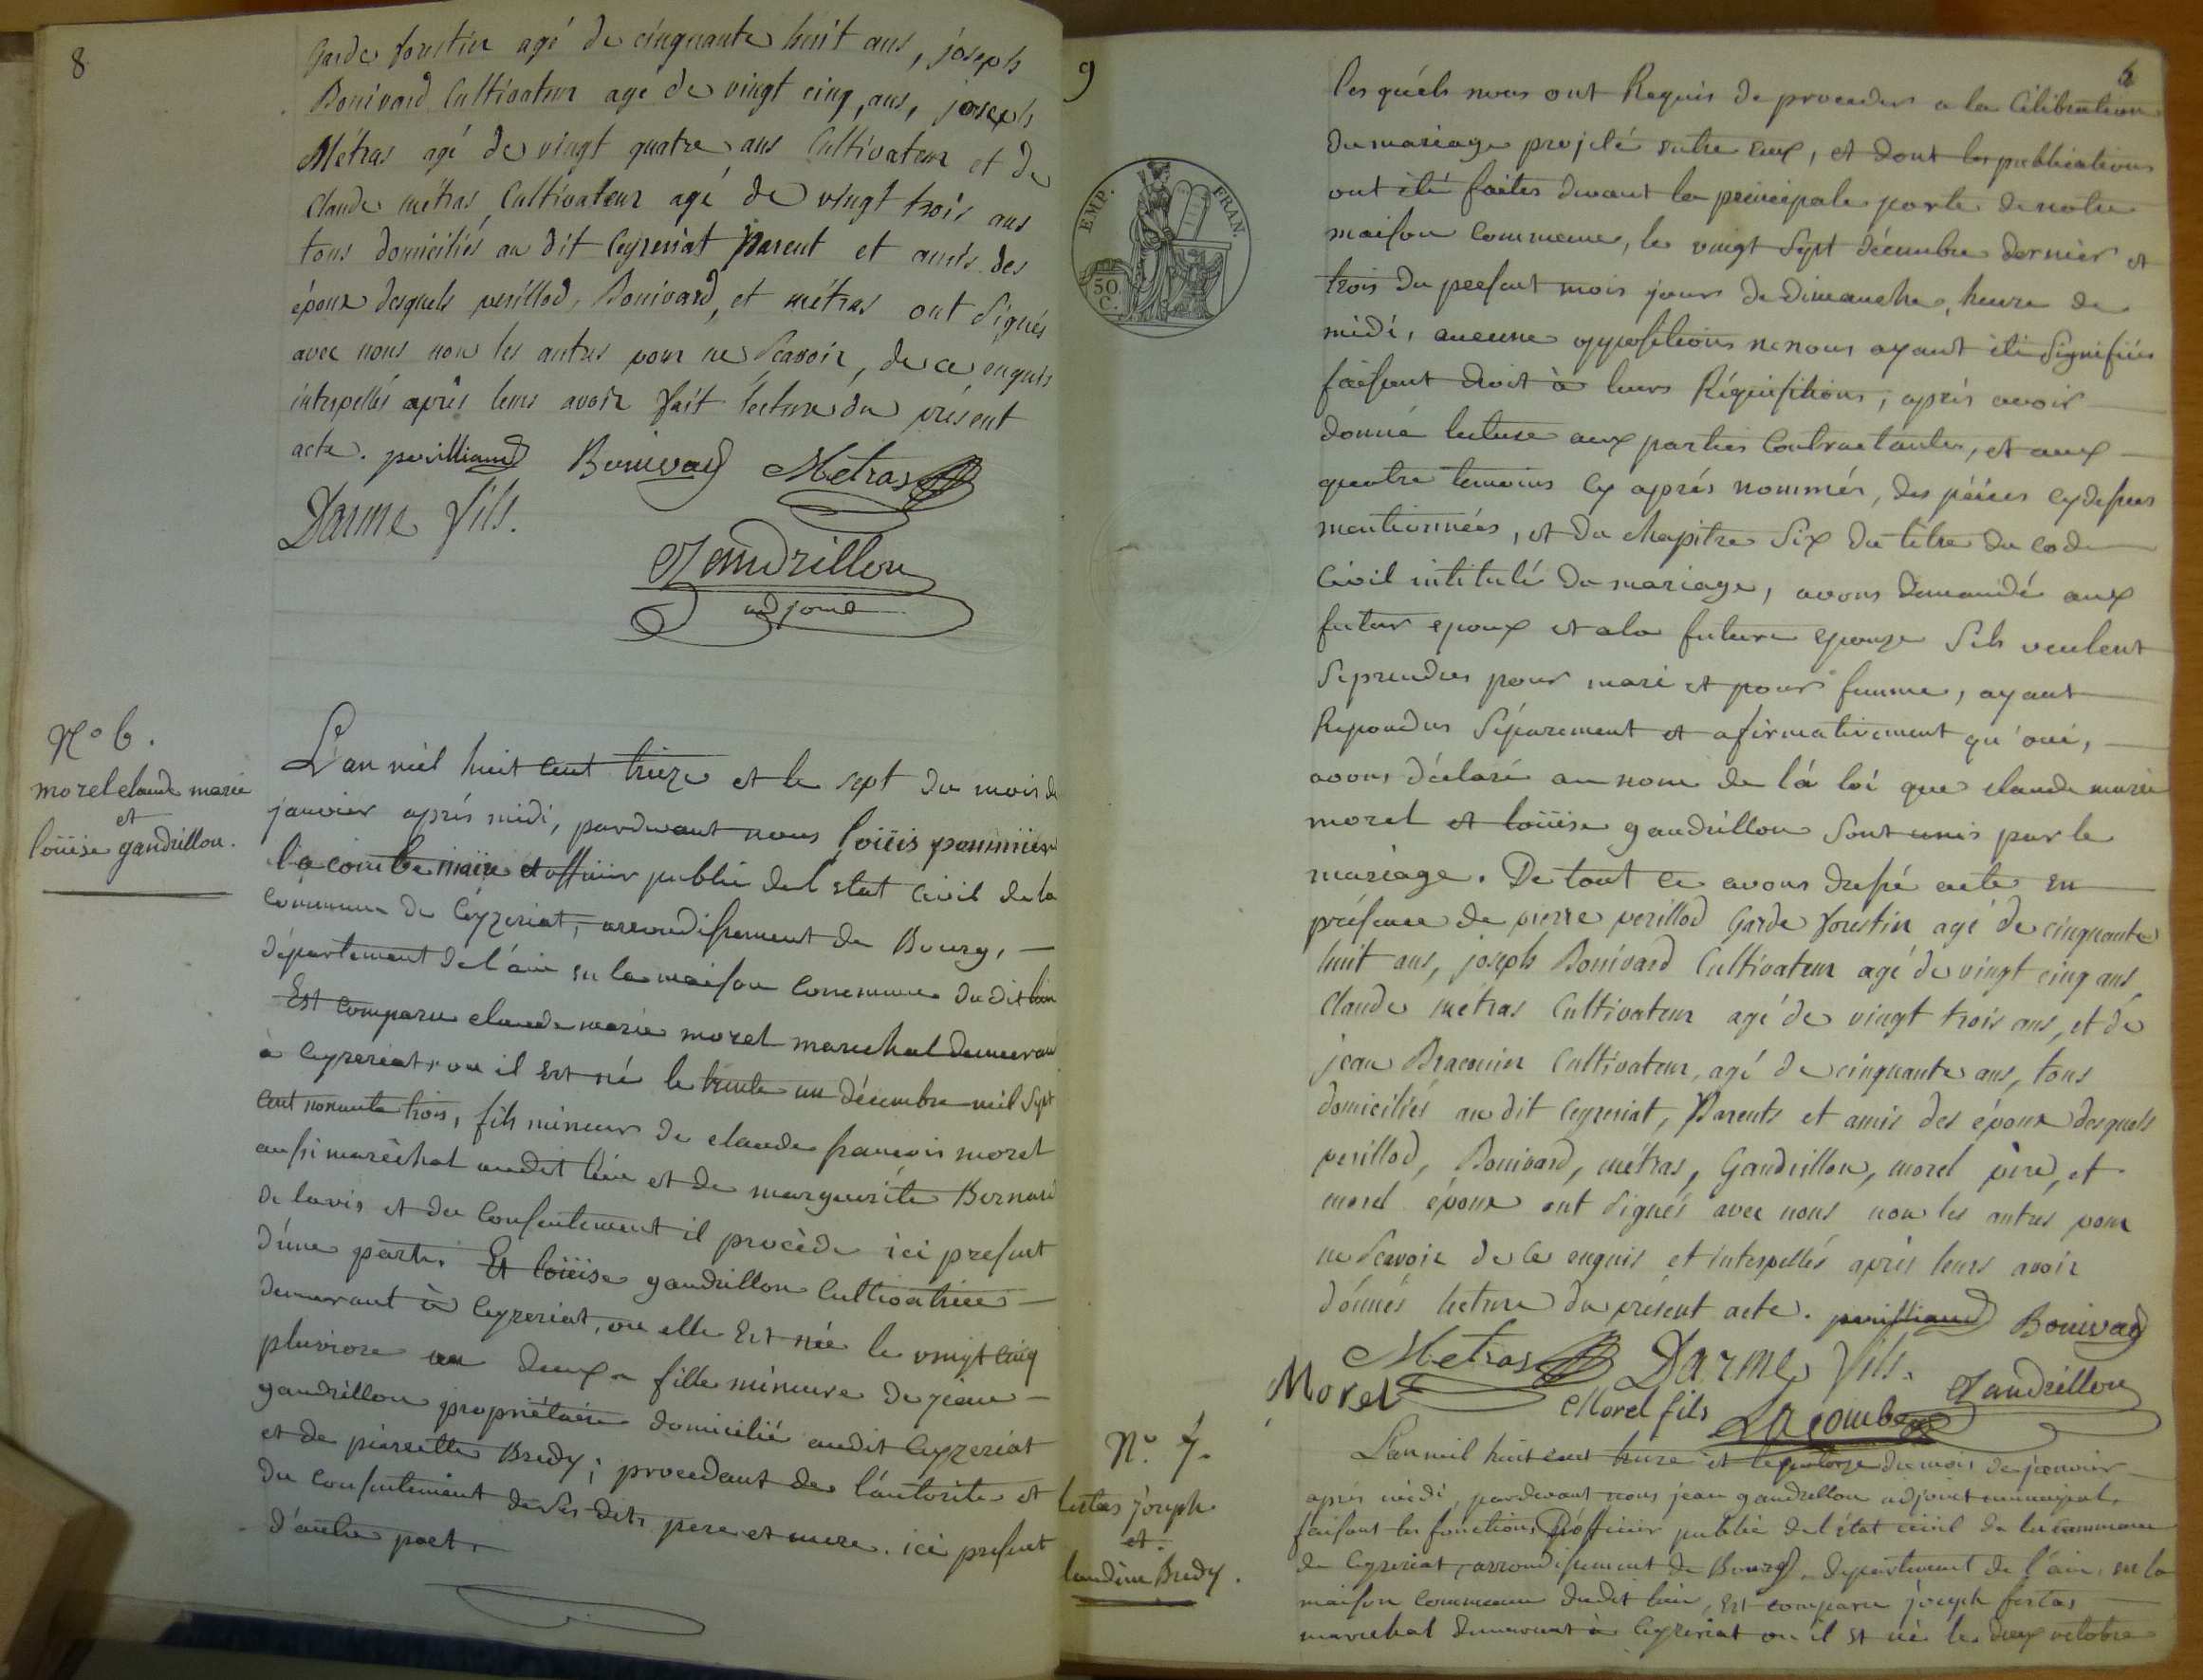 8
garde forestier agé de cinquante huit ans, joseph
Bonivard Cultivateur agé de vingt cinq, ans, joseph
Métras agé de vingt quatre ans Cultivateur et de
claude métras, Cultivateur agé de vingt trois ans
tous domiciliés au dit Ceyzeriat parent et amis des
époux desquels perillod, Bonivard, et métras ont signés
avec nous non les autres pour ne scavoir, de ce enquis
interpellés après leurs avoir fait lecture du présent
acte. perilliaud Bonivard Metras
Darme fils.
Gandrillon
adjoint
N.o 6.
morel claude marie
et
loüise gandrillon.
L'an mil huit cent treize et le sept du mois de
janvier après midi, pardevant nous loüis pommier
lacombe maire et officier public de l'etat civil de la
commune de Ceyzeriat, arrondissement de Bourg,
département de l'ain en la maison commune du dit lieu
Est comparu claude marie morel marechal demeurant
à Ceyzeriat, ou il Est né le trente un décembre mil sept
cent nonante trois, fils mineur de claude francois morel
aussi maréchal audit lieu et de marguerite Bernard
de lavis et du Consentement il procède ici present
d'une part. Et loüise gandrillon Cultivatrice
demeurant à Ceyzeriat, ou elle Est née le vingt cinq
pluviose an deux fille mineure de jean
gandrillon propriétaire domicilié audit Ceyzeriat
et de pierrette Bredy; procedant de l'autorite et
du consentement de ses dits pere et mere. ici present
d'autre part.
9
EMP. FRAN.
50 C.
les quéls nous ont Requis de proceder a la Célébration
du mariage projeté entre Eux, et dont les publications
ont été faites devant la principale porte de notre
maison Commune, les vingt sept décembre dernier et
trois du present mois jour de dimanche, heure de
midi, aucune oppositions ne nous ayant été signifiées
faisant droit à leurs Réquisitions, aprés avoir
donné lecture aux parties Contractantes, et aux
quatre temoins cy aprés nommés, des piéces cydessus
mentionnées, et du chapitre Six du titre du code
Civil intitulé du mariage, avons demandé aux
futur epoux et a la future epouze Sils veulent
se prendre pour mari et pour femme, ayant
Repondus Séparement et afirmativement qu'oui,
avons déclaré au nom de la loi que claude marie
morel et loüise gandrillon Sont unis par le
mariage. De tout ce avons dressé acte en
présence de pierre perillod Garde forestier agé de cinquante
huit ans, joseph Bonivard Cultivateur agé de vingt cinq ans,
Claude métras Cultivateur agé de vingt trois ans, et de
jean Braconier Cultivateur, agé de cinquante ans, tous
domiciliés au dit Ceyzeriat, Parents et amis des époux desquels
perillod, Bonivard, métras, Gandrillon, morel père, et
morel époux ont signés avec nous non les autres pour
ne scavoir de ce enquis et interpellés après leurs avoir
donnés lecture du présent acte. perilliaud Bonivard
Metras Darme fils.
Morel Morel fils Lacombe Gandrillon
N.o 7.
joseph
et.
Bredy.
L'an mil huit cent treize et le quatorze du mois de janvier
après midi, pardevant nous jean gandrillon adjoint municipal,
faisant les fonctions d'officier public de l'état civil de la commune
de Ceyzeriat, arrondissement de Bourg, departement de l'ain, en la
maison commune dudit lieu, est comparu joseph
marechal demeurant à Ceyzeriat ou il est né le deux octobre